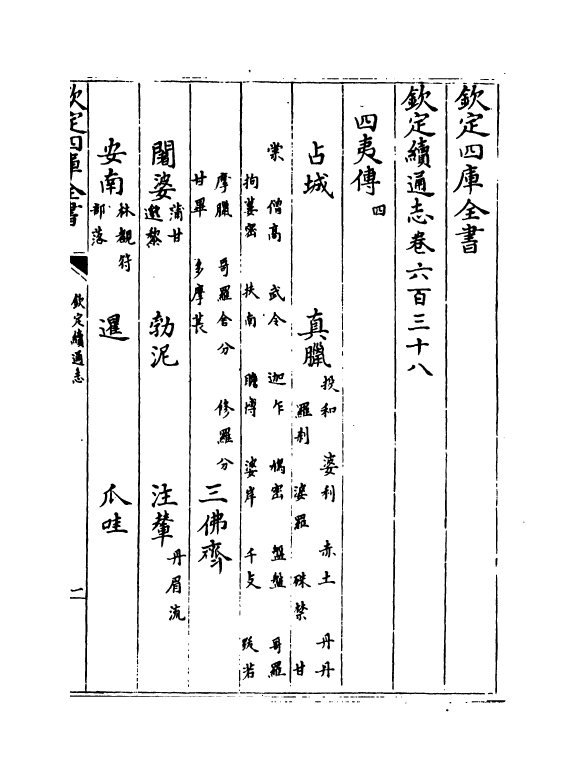 欽定四庫全書
欽定續通志卷六百三十八
四夷傳四
占城 真臘 投和 婆利 赤土 丹丹
羅刹 婆羅 殊禁 甘
棠 僧高 武令 迦乍 鳩密 盤盤 哥羅
拘蔞密 扶南 瞻博 婆岸 千支 跋若
摩臘 哥羅舍分 修羅分
甘畢 多摩萇
三佛齊
闍婆 蒲甘
邈黎
勃泥 注輦 丹眉流
安南 林覩符
部落
暹 爪哇
欽定四庫全書
欽定續通志
一